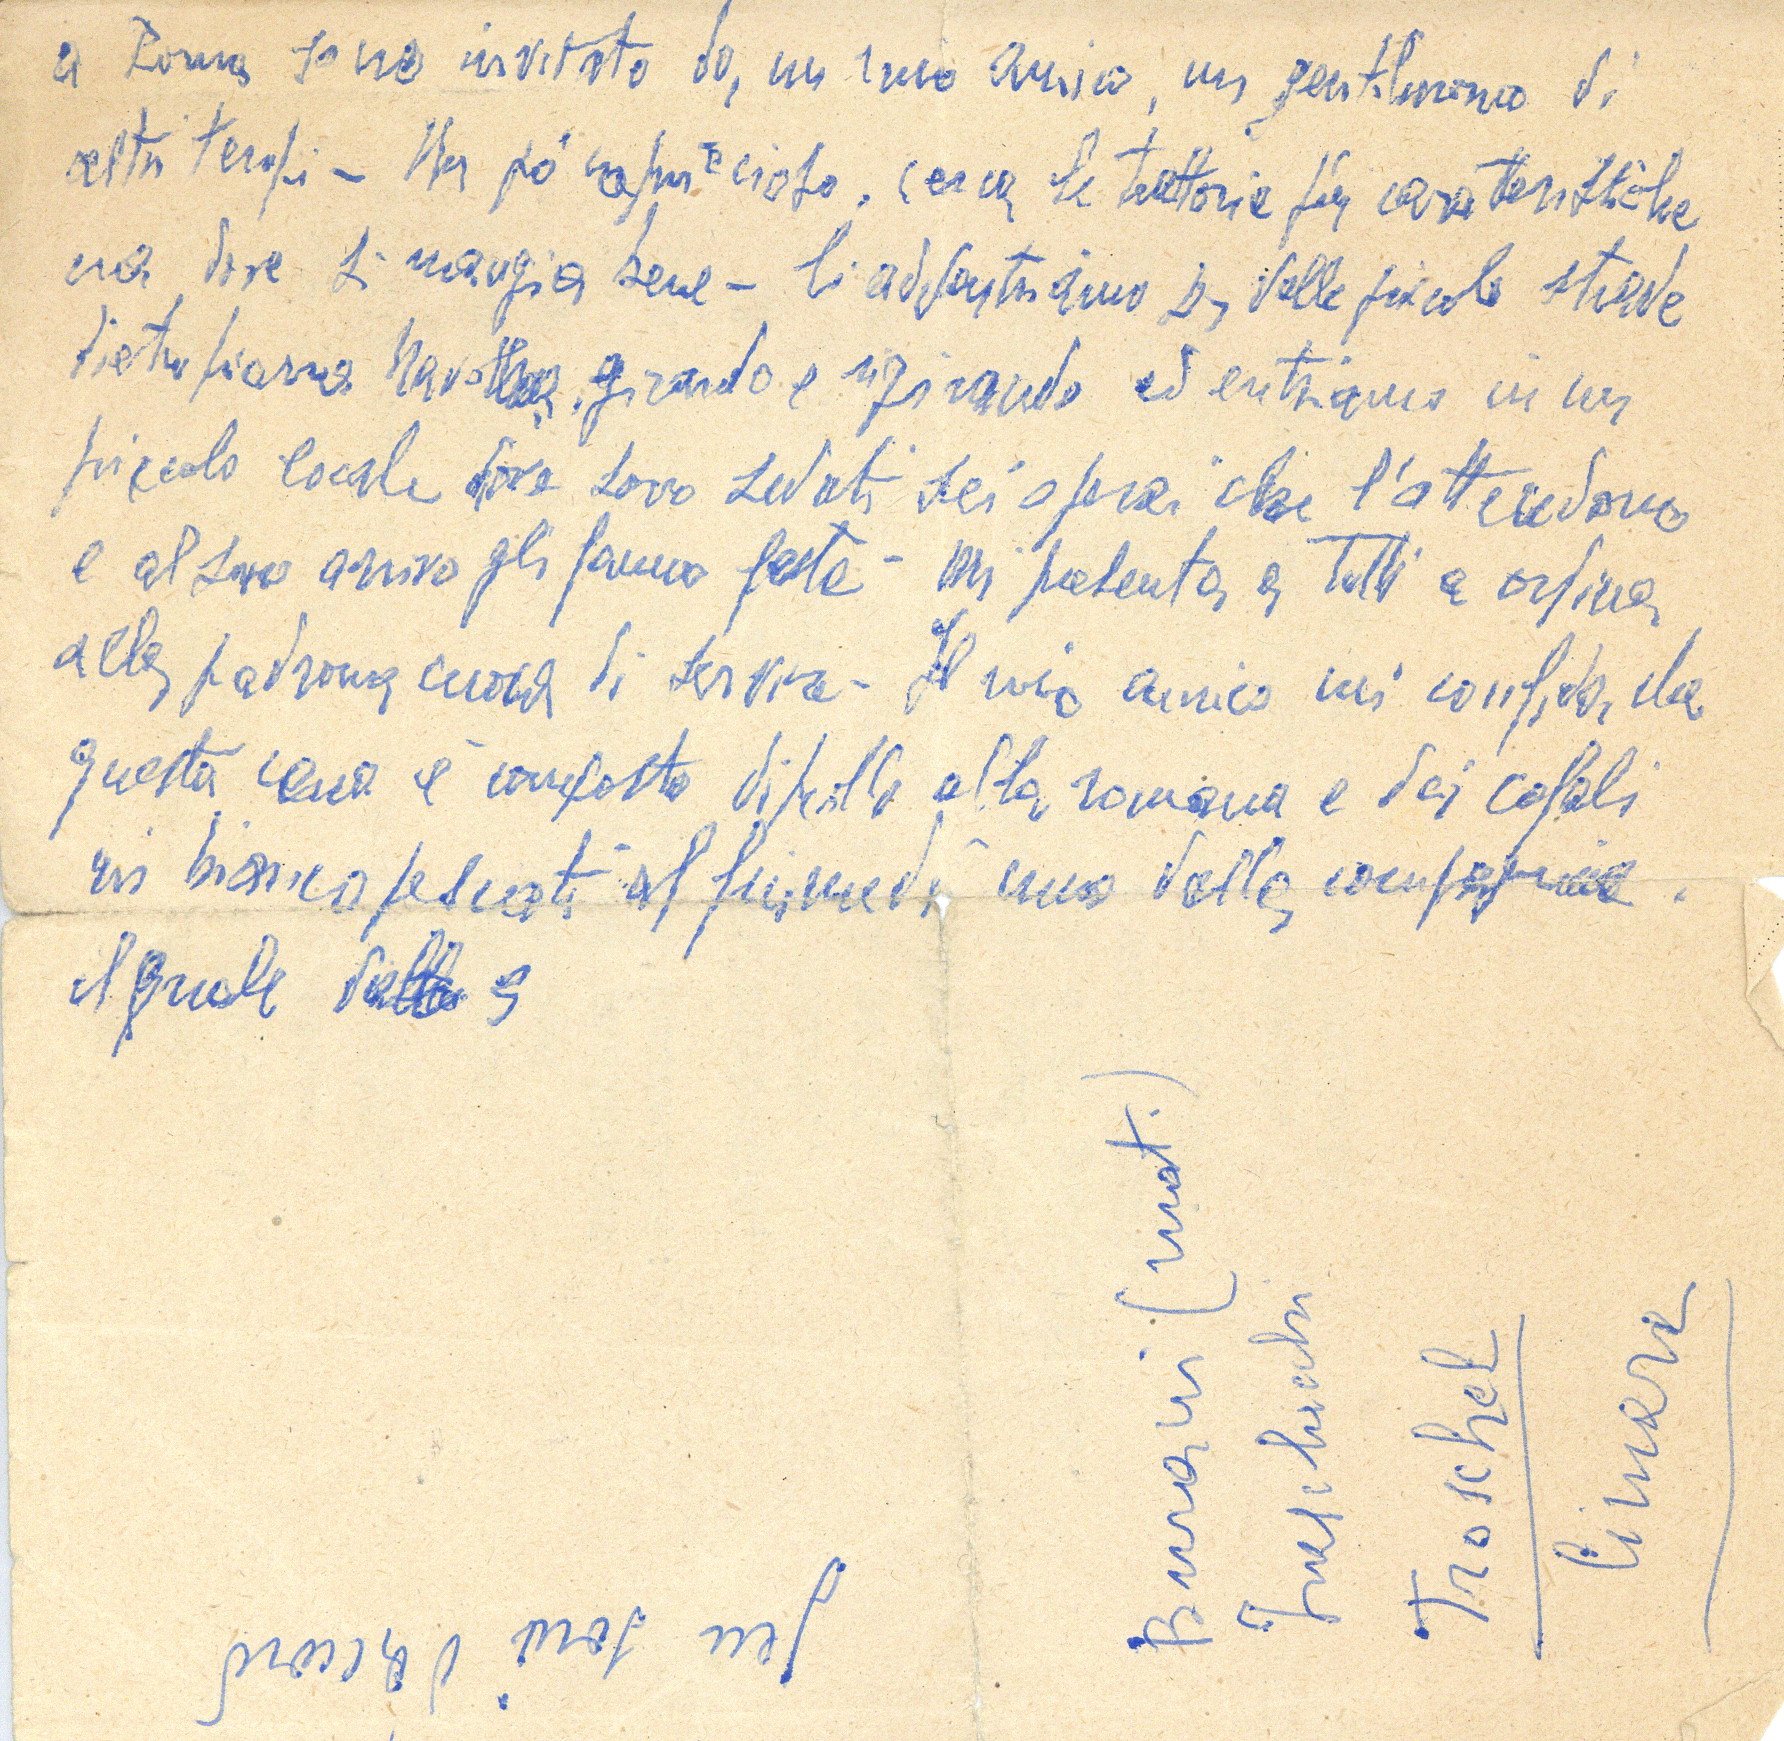 a Roma sono invitato da un mio amico, un gentiluomo di
altri tempi – Un pò capriccioso. cerca le trattorie più caratteristiche
ma dove si mangia bene – Ci addentriamo in delle piccole strade
dietro piazza Navona, girando e rigirando ed entriamo in un
piccolo locale dove sono seduti sei operai che l'attendono
e al suo arrivo gli fanno festa – Mi presenta a tutti e ordina
alla padrona cuoca di servire – Il mio amico mi confida che
questa cena è composta di pollo alla romana e dei cefali
in bianco pescati al fiume da uno della compagnia.
il quale
Burani (mat.)
Troschel
Cimara
J'en suis d'accord